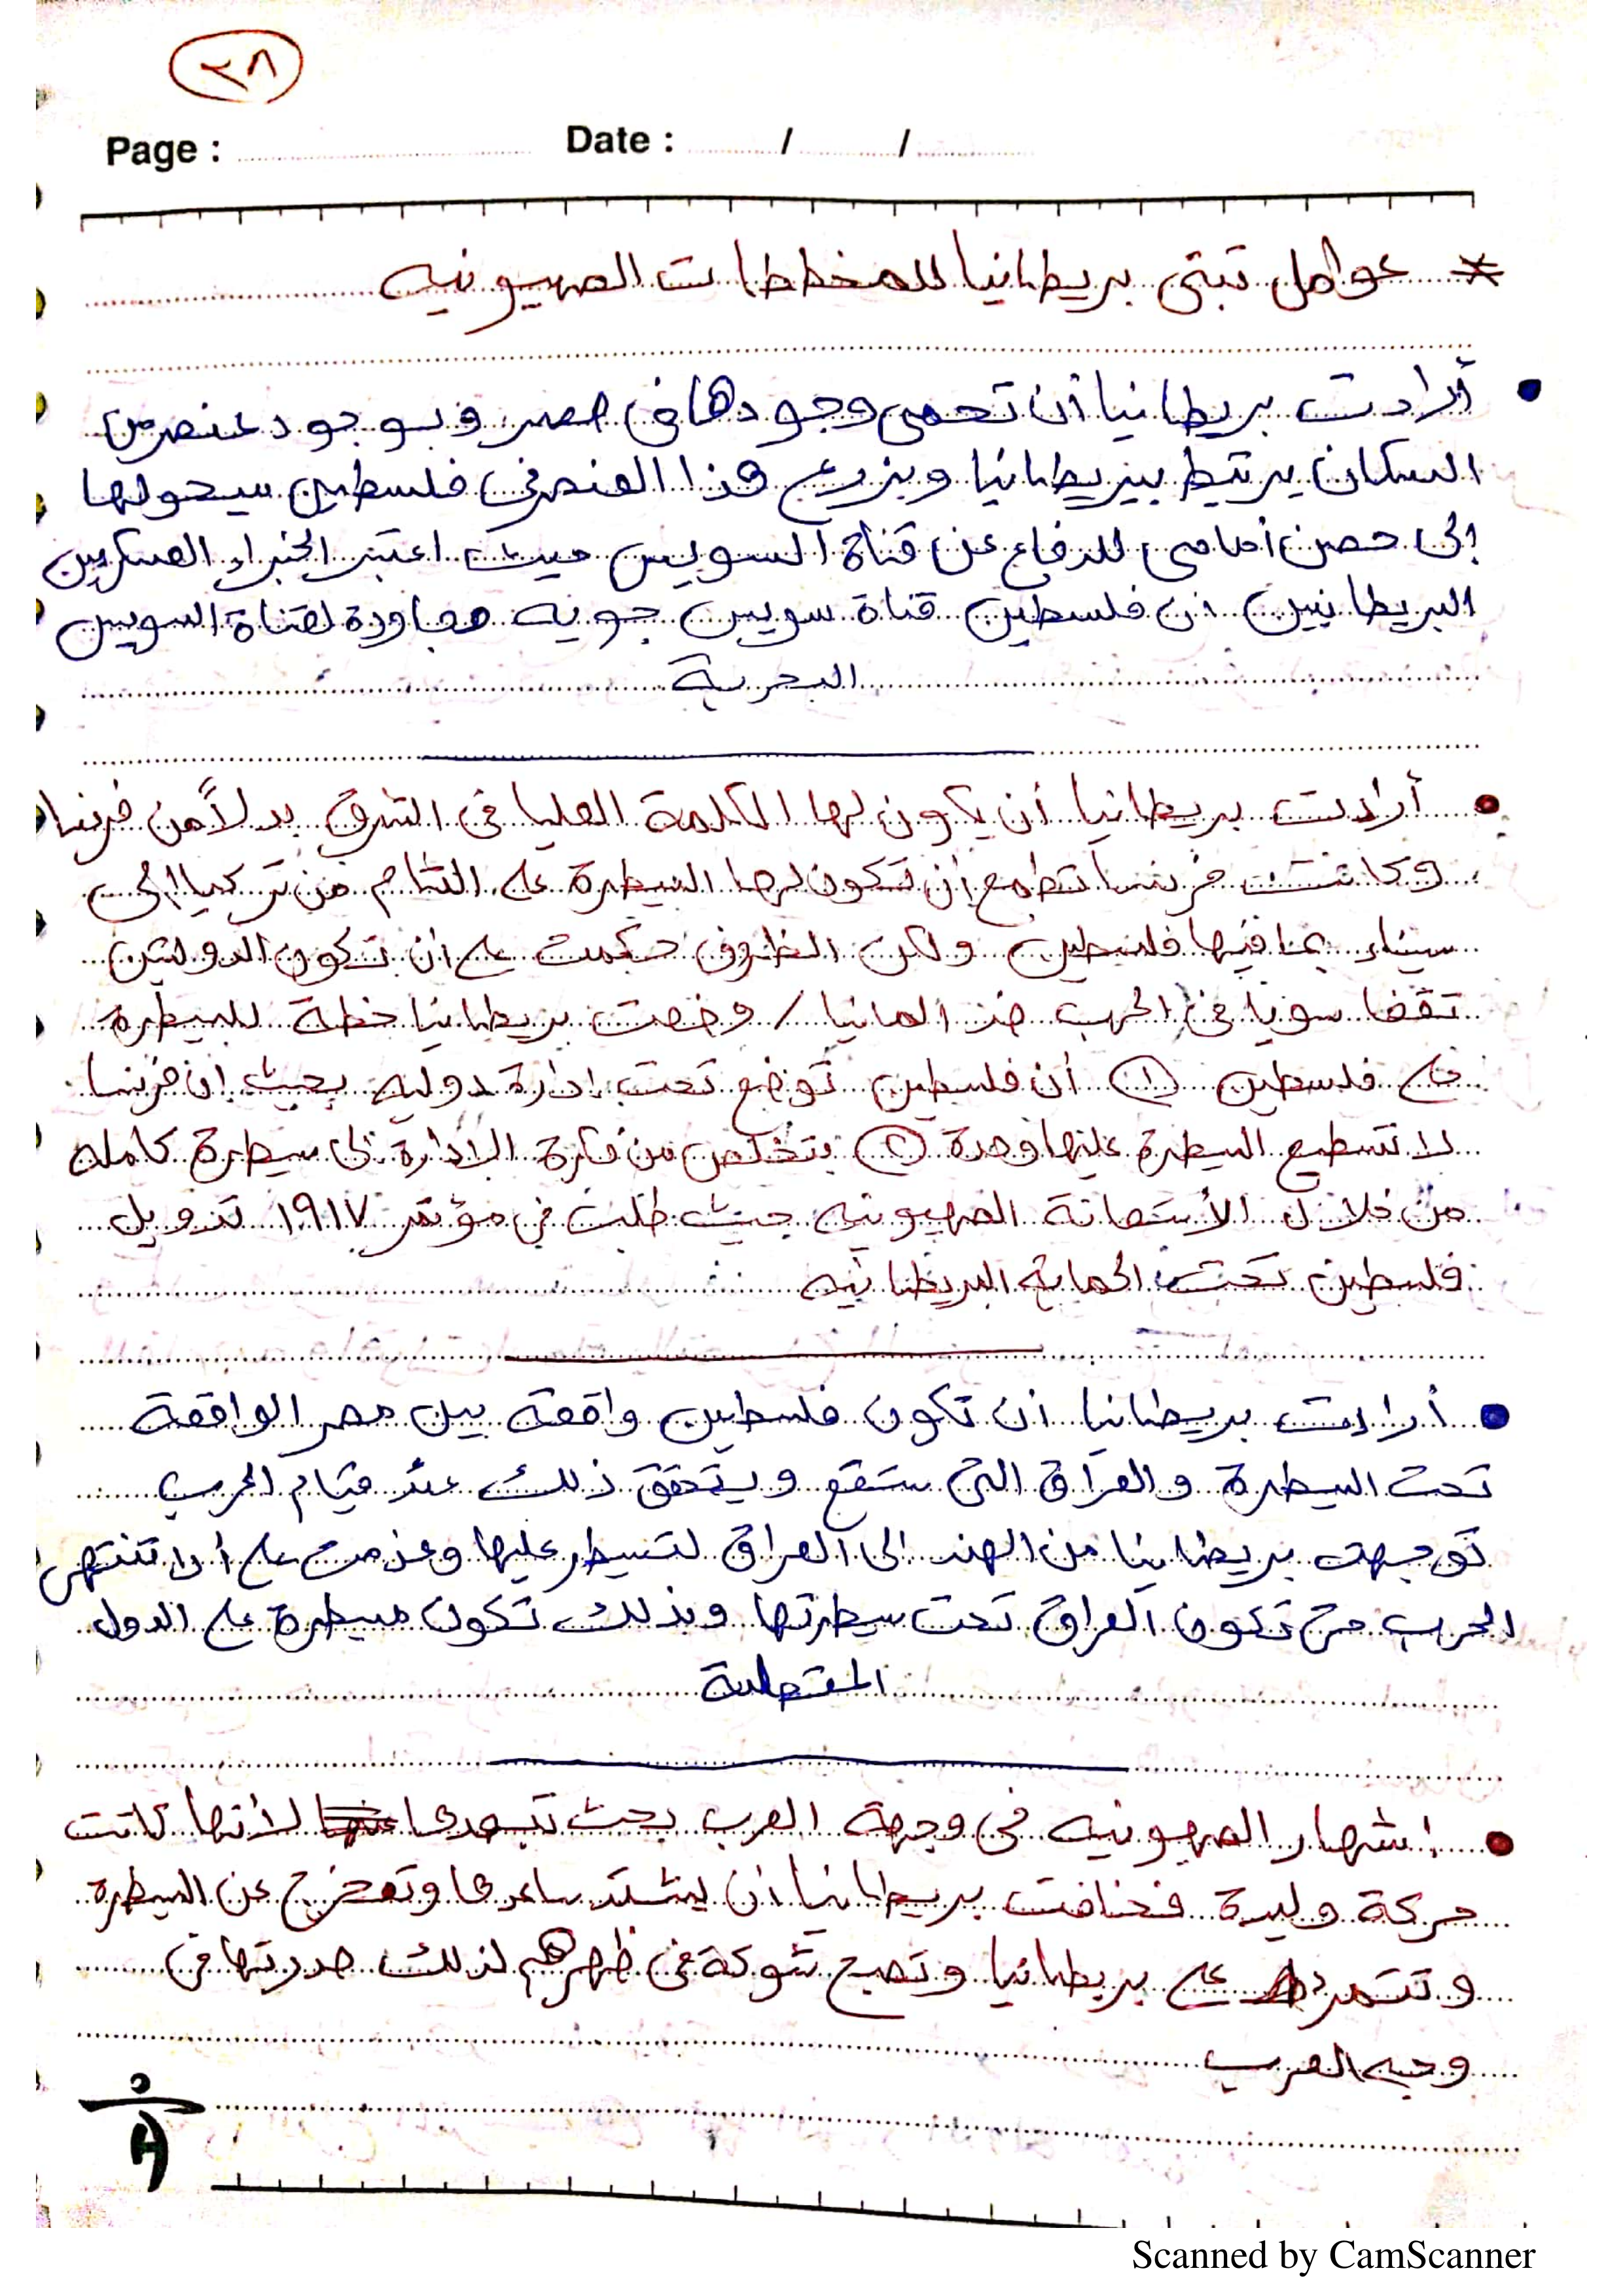 ٢٨
Page : Date : / /
* عوامل تبنى بريطانيا للمخططات الصهيونيه
• أرادت بريطانيا أن تحمى وجودها فى مصر وبوجود عنصر من
السكان يرتبط ببريطانيا وبزرع هذا العنصر فى فلسطين سيحولها
إلى حصن أمامى للدفاع عن قناة السويس حيث اعتبر الخبراء العسكرين
البريطانين ان فلسطين قناة سويس جويه مجاورة لقناة السويس
البحرية
• أرادت بريطانيا أن يكون لها الكلمة العليا فى الشرق بدلاً من فرنسا
وكانت فرنسا تطمع أن تكون لها السيطرة على الشام من تركيا إلى
سيناء بما فيها فلسطين ولكن الظروف حكمت على ان تكون الدولتين
تقفا سويا فى الحرب ضد المانيا / وضعت بريطانيا خطة للسيطرة
على فلسطين ① أن فلسطين توضع تحت ادارة دوليه بحيث ان فرنسا
لا تسطيع السيطرة عليها وحدة ② تتخلص من فكرة الادارة الى سيطرة كامله
من خلال الأستعانة الصهيونيه حيث طلبت فى مؤتمر ١٩١٧ تدويل
فلسطين تحت الحماية البريطانيه
• أرادت بريطانيا ان تكون فلسطين واقعة بين مصر الواقعة
تحت السيطرة والعراق التى ستقع ويتحقق ذلك عند قيام الحرب
توجهت بريطانيا من الهند الى العراق لتسيطر عليها وعزمت على ألا تنتهى
الحرب حتى تكون العراق تحت سيطرتها وبذلك تكون مسيطرة على الدول
المتصلة
• إشهار الصهيونيه فى وجهة العرب بحيث لأنها كانت
حركة وليدة فخافت بريطانيا ان يشتد ساعدها وتخرج عن السيطرة
وتتمرد على بريطانيا وتصبح شوكة فى ظهرهم لذلك صدرتها فى
وجه العرب
Scanned by CamScanner